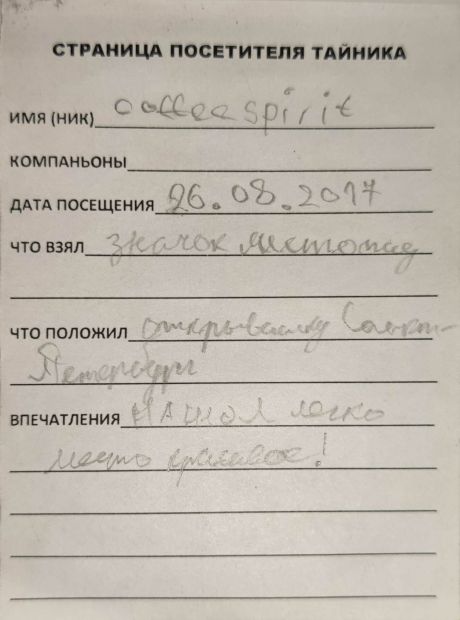 СТРАНИЦА ПОСЕТИТЕЛЯ ТАЙНИКА
ИМЯ (НИК) coffeespirit
КОМПАНЬОНЫ
ДАТА ПОСЕЩЕНИЯ 26.08.2017
ЧТО ВЗЯЛ значок листопад
ЧТО ПОЛОЖИЛ открывалку Санкт-
Петербург
ВПЕЧАТЛЕНИЯ Нашол легко
место красивое!